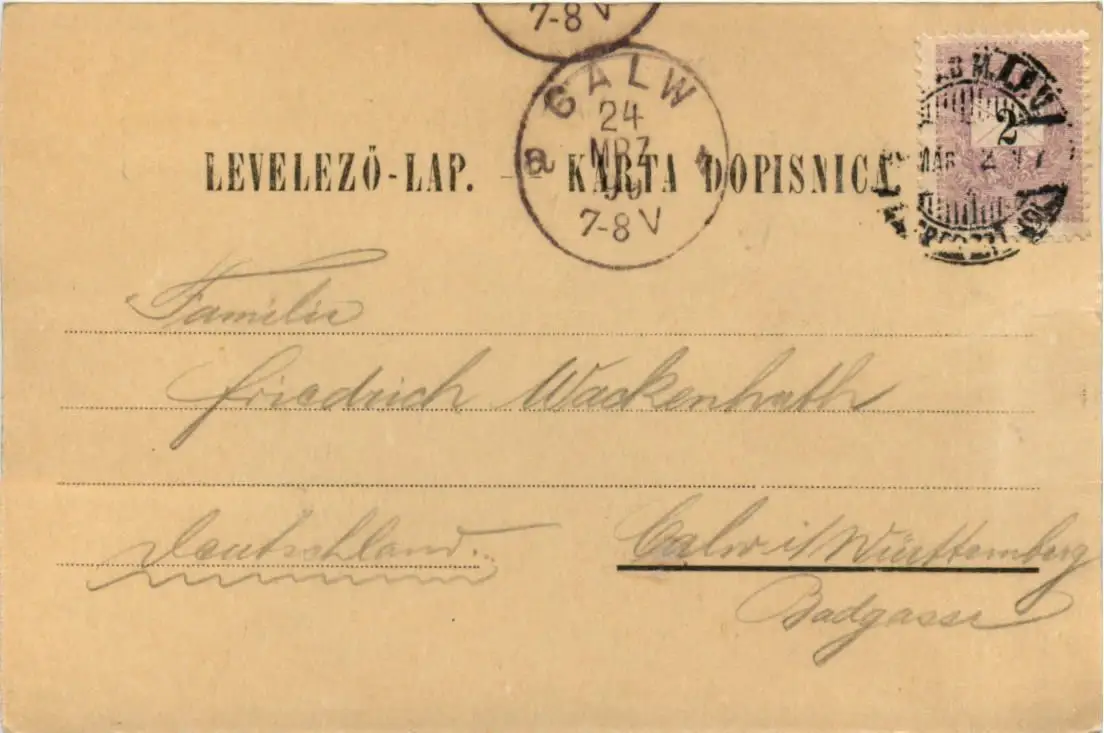 7-8 V
CALW
24
MRZ
7-8 V
2
MÁR
LEVELEZŐ-LAP. — KARTA DOPISNICA
Familie
Friedrich Wackenhuth
Deutschland.
Calw i/Württemberg
Badgasse